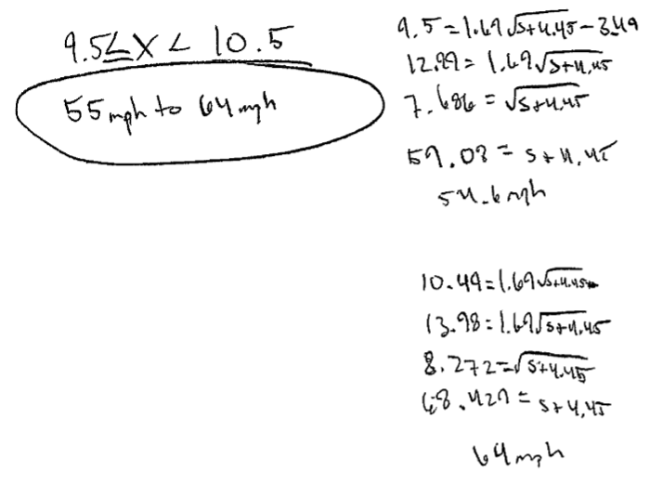 9.5 ≤ x < 10.5
55mph to 64mph
9.5 = 1.69√s+4.45 - 3.49
12.99 = 1.69√s+4.45
7.686 = √s+4.45
59.08 = s + 4.45
54.6mph
10.49 = 1.69√s+4.45
13.98 = 1.69√s+4.45
8.272 = √s+4.45
68.429 = s + 4.45
64mph